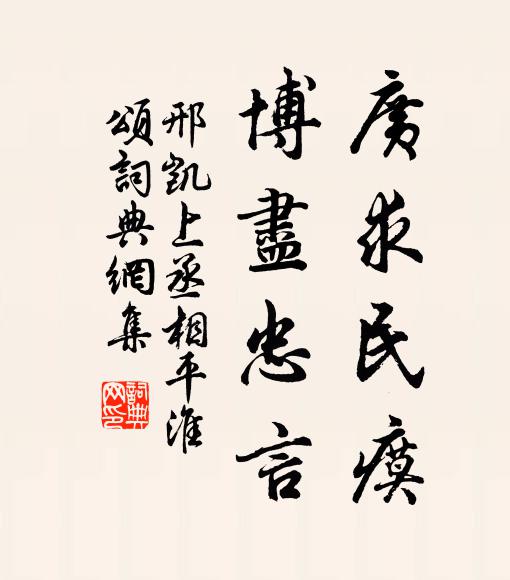 廣求民瘼
博盡忠言
邢凱上丞相平淮
頌詞典網集
詞典網印